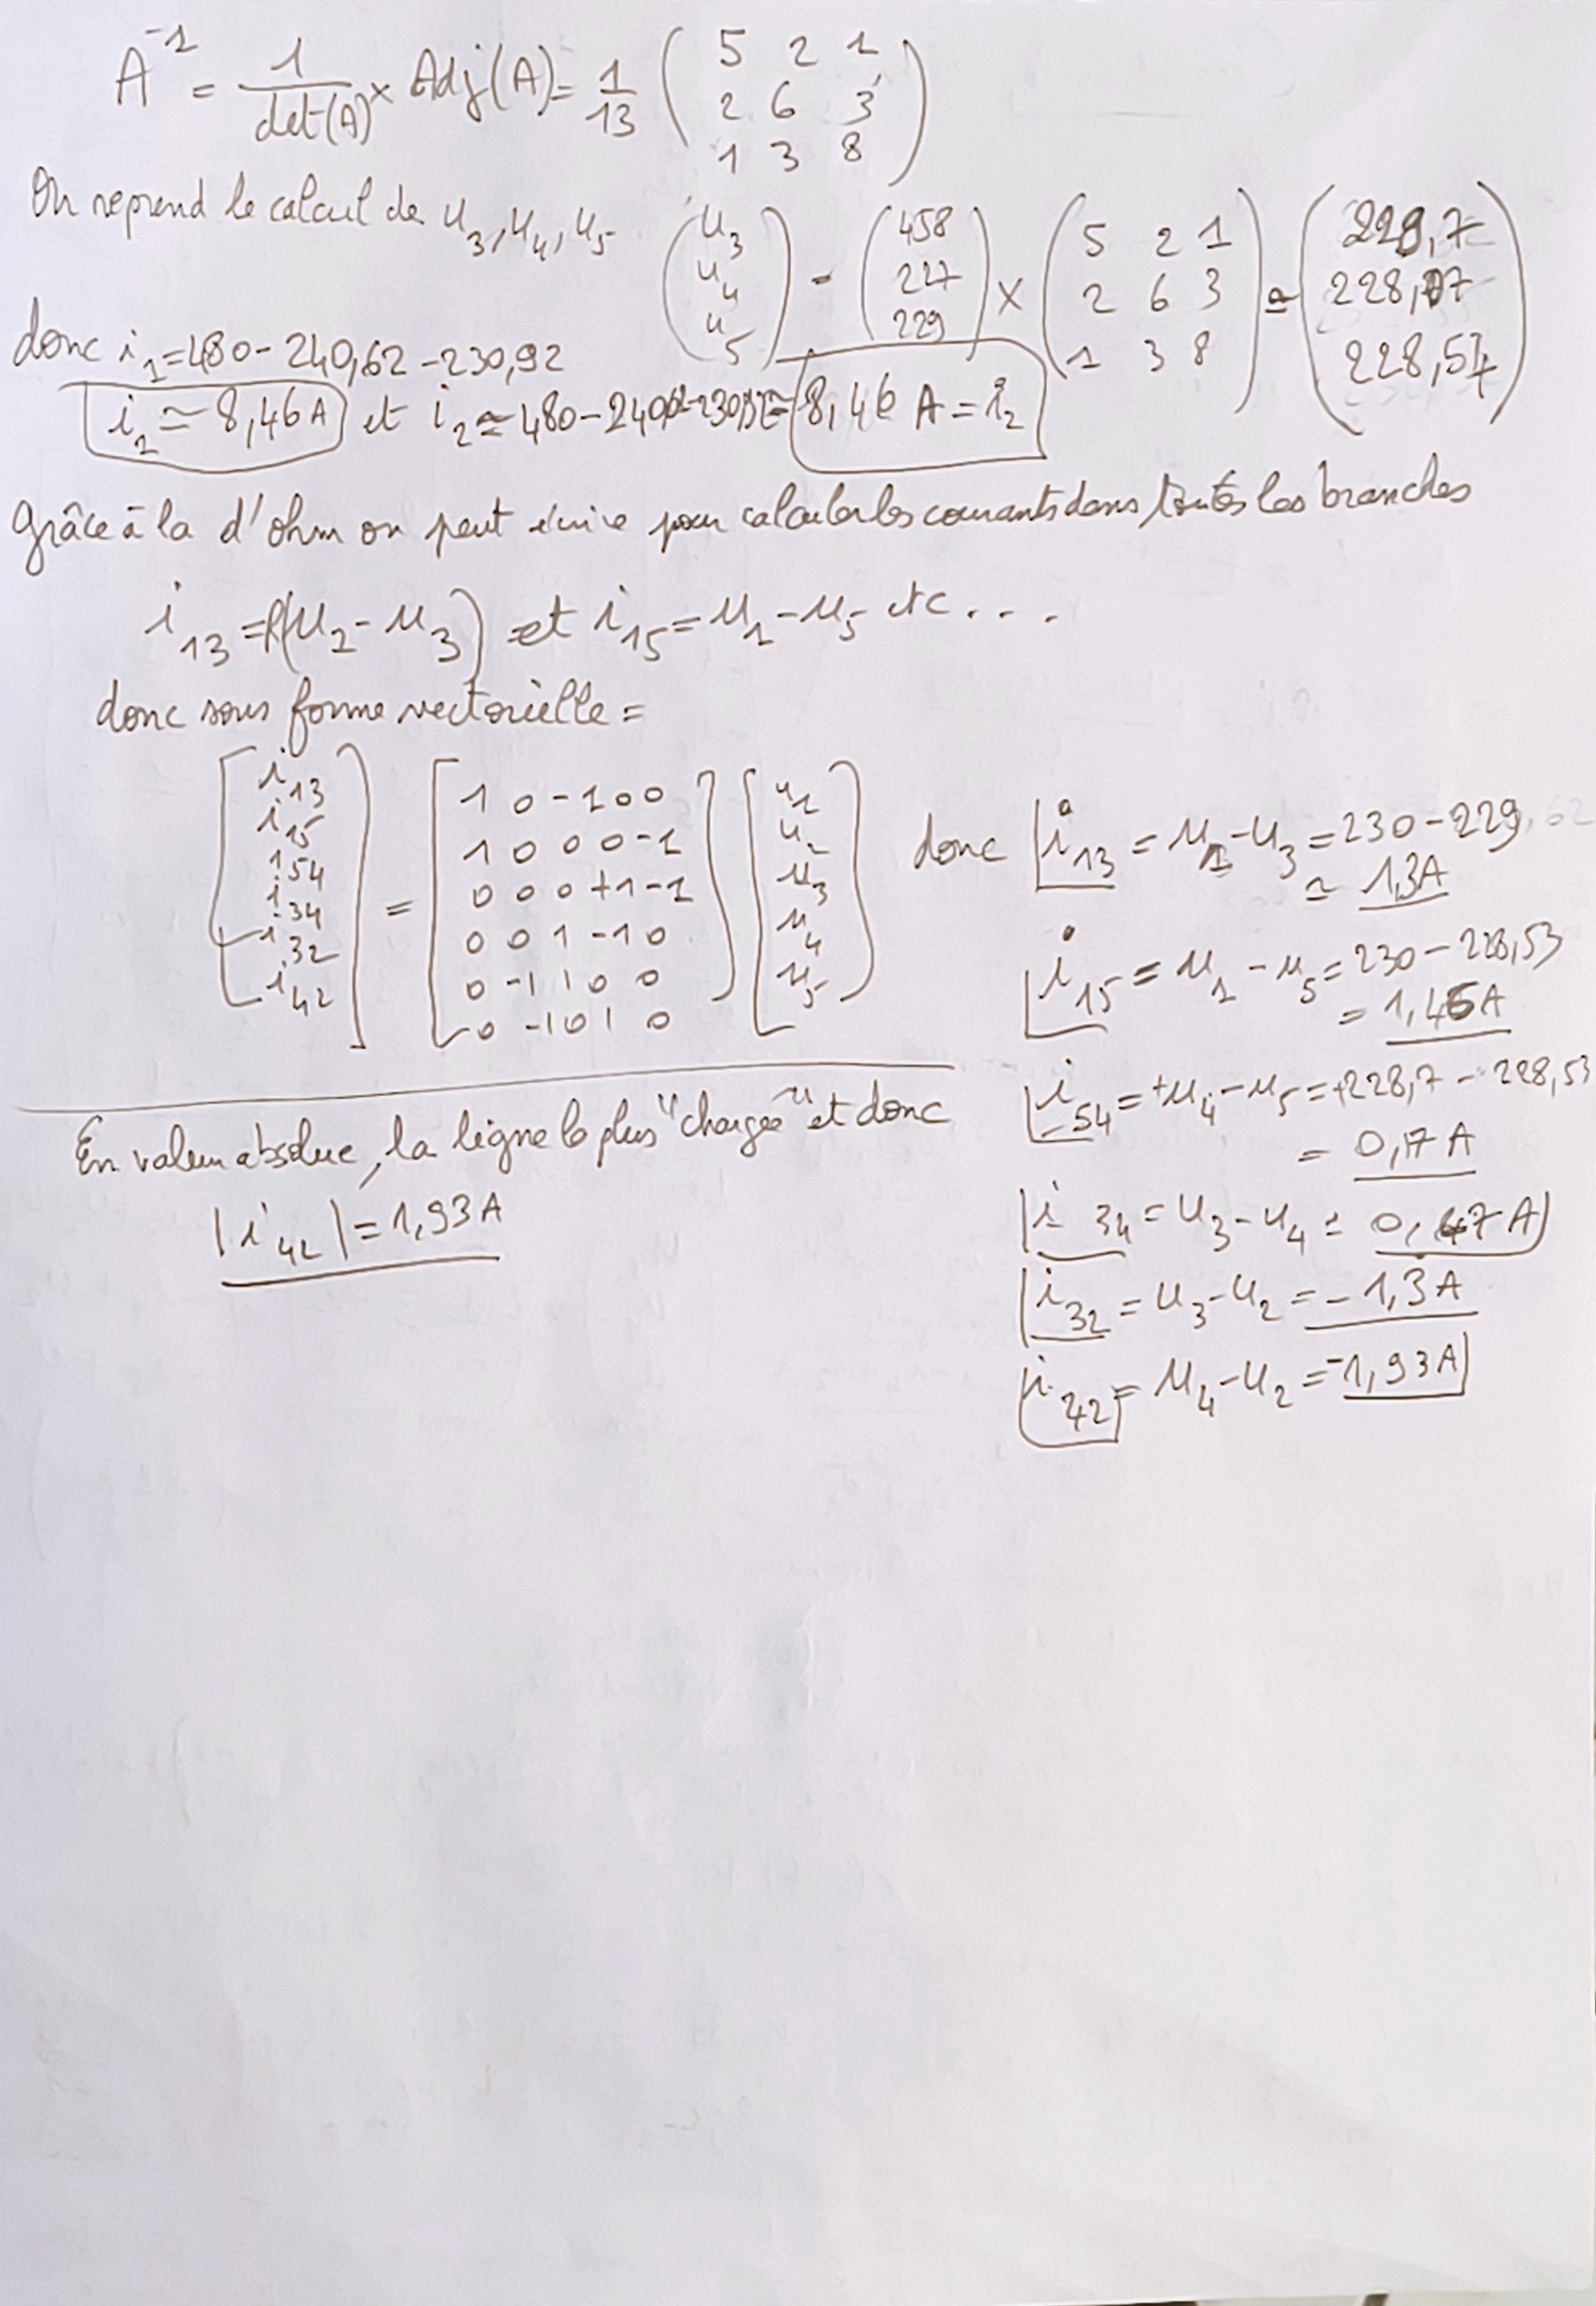 A⁻¹ = 1/det(A) × Adj(A) = 1/13 ( 5 2 1
2 6 3
1 3 8 )
On reprend le calcul de u₃, u₄, u₅ ( u₃ u₄ u₅ ) = ( 458 227 229 ) × ( 5 2 1
2 6 3
1 3 8 ) ≃ ( 229,7 228,07 228,57 )
donc i₁ = 480 - 240,62 - 230,92
i₂ ≃ 8,46 A et i₂ ≃ 480 - 240,62 - 230,92 = 8,46 A = i₂
Grâce à la d'ohm on peut écrire pour calculer les courants dans toutes les branches
i₁₃ = (u₂ - u₃) et i₁₅ = u₁ - u₅ etc . . .
donc sous forme vectorielle =
[ i₁₃ i₁₅ i₅₄ i₃₄ i₃₂ i₄₂ ] = [ 1 0 -1 0 0
1 0 0 0 -1
0 0 0 +1 -1
0 0 1 -1 0
0 -1 1 0 0
0 -1 0 1 0 ] [ u₁ u₂ u₃ u₄ u₅ ]
donc i₁₃ = u₁ - u₃ = 230 - 229,62
≃ 1,3A
i₁₅ = u₁ - u₅ = 230 - 228,53
= 1,46A
i₅₄ = +u₄ - u₅ = +228,7 - 228,53
= 0,17 A
i₃₄ = u₃ - u₄ = 0,47 A
i₃₂ = u₃ - u₂ = - 1,3 A
i₄₂ = u₄ - u₂ = -1,93A
En valeur absolue, la ligne la plus "chargée" et donc
|i₄₂| = 1,93A